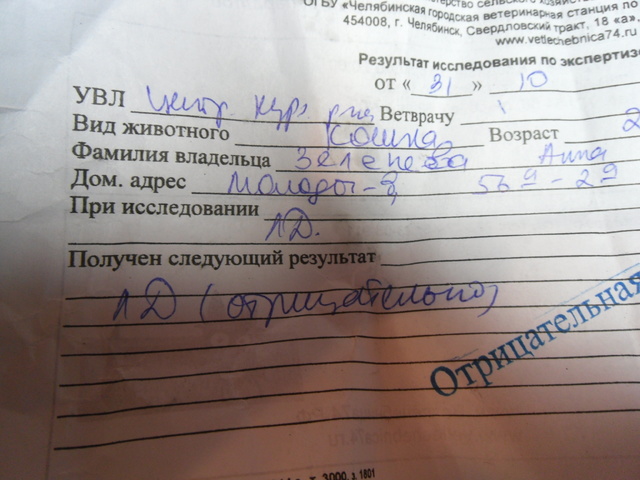 ОГБУ «Челябинская городская ветеринарная станция по
454008, г. Челябинск, Свердловский тракт, 18 «а».
www.vetlechebnica74.ru
Результат исследования по экспертизе
от « 31 » 10
УВЛ Центр Ветврачу
Вид животного кошка Возраст 2
Фамилия владельца Анна
Дом. адрес 569-29
При исследовании
ЛД.
Получен следующий результат
ЛД (отрицательно)
Отрицательная
т. 3000, з. 1801